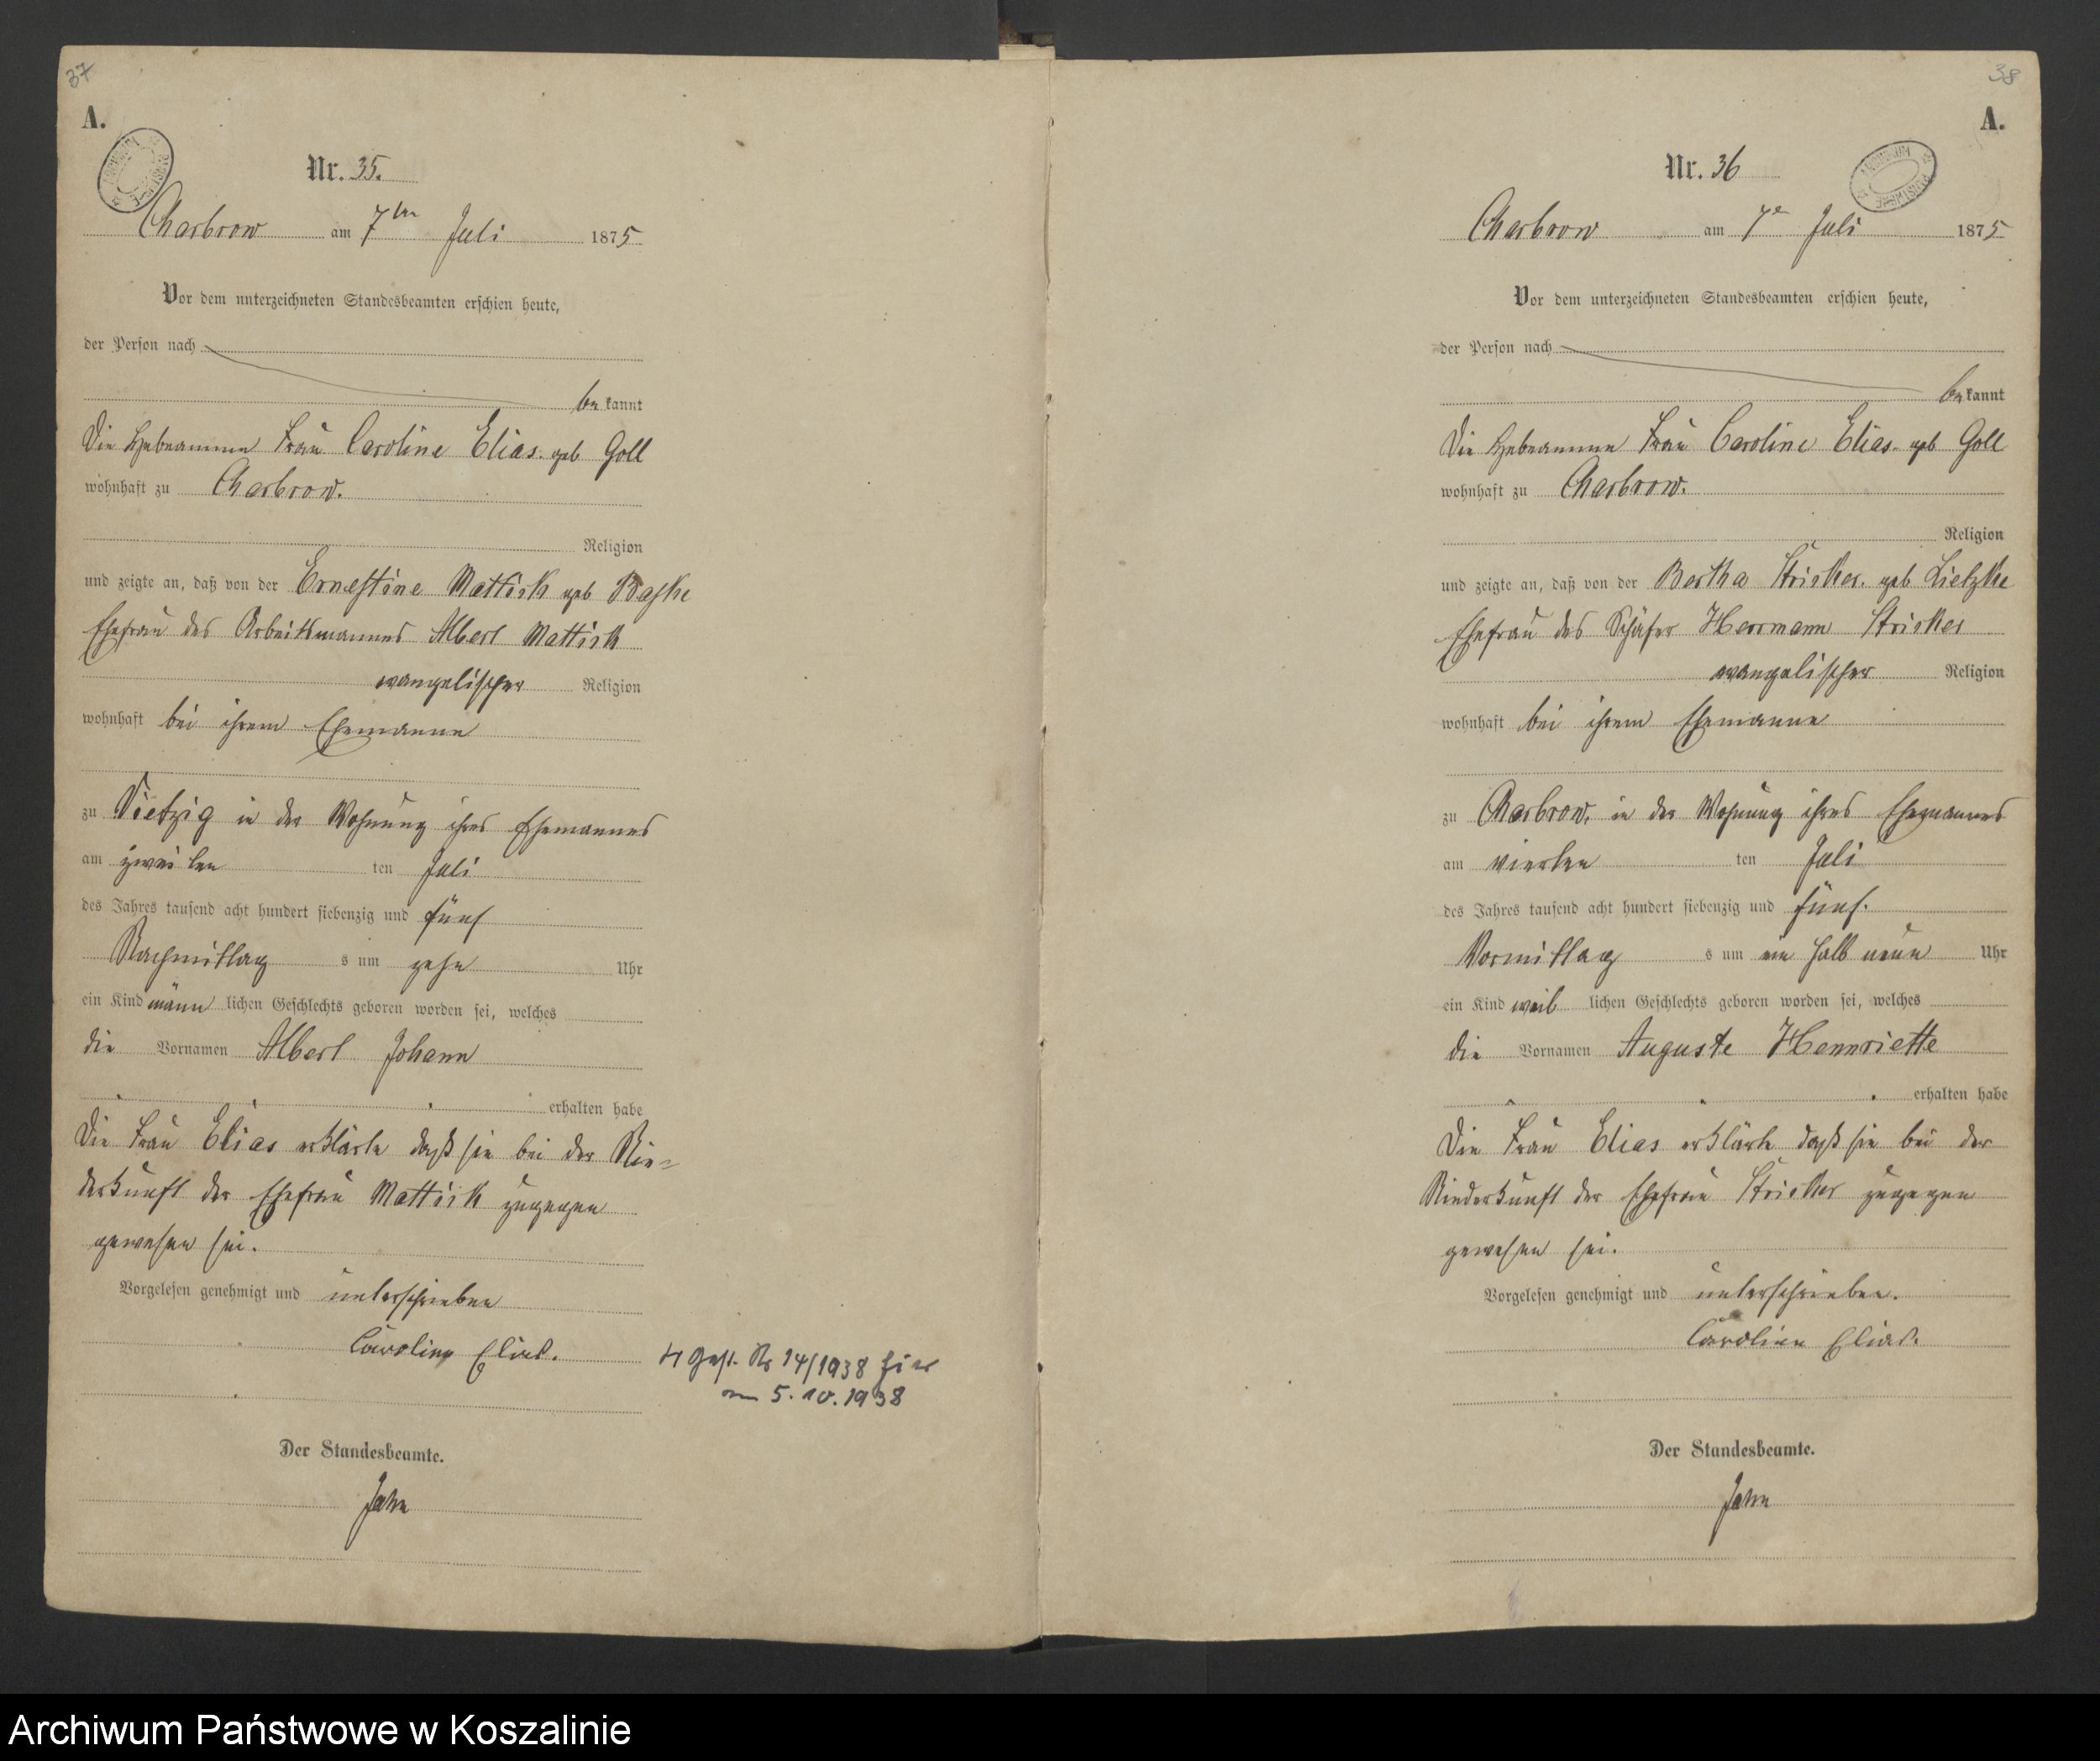 37
A.
Nr. 35.
Charbrow am 7ten Juli 1875
Vor dem unterzeichneten Standesbeamten erschien heute,
der Person nach
bekannt
Die Hebeamme Frau Caroline Elias. geb Goll
wohnhaft zu Charbrow.
Religion
und zeigte an, daß von der Ernestine Mattick geb Baske
Ehefrau des Arbeitsmannes Albert Mattick
evangelischer Religion
wohnhaft bei ihrem Ehemanne
zu Vietzig in der Wohnung ihres Ehemannes
am zweiten ten Juli
des Jahres tausend acht hundert siebenzig und fünf
Nachmittag s um zehn Uhr
ein Kind männ lichen Geschlechts geboren worden sei, welches
die Vornamen Albert Johann
erhalten habe
Die Frau Elias erklärte daß sie bei der Nie=
derkunft der Ehefrau Mattick zugegen
gewesen sei.
Vorgelesen genehmigt und unterschrieben
Caroline Elias.
Gest. Nr 14/1938 hier
am 5.10.1938
Der Standesbeamte.
Jahn
38
A.
Nr. 36
Charbrow am 7e Juli 1875
Vor dem unterzeichneten Standesbeamten erschien heute,
der Person nach
bekannt
Die Hebeamme Frau Caroline Elias. geb Goll
wohnhaft zu Charbrow.
Religion
und zeigte an, daß von der Bertha Stricker. geb Lietzke
Ehefrau des Schäfer Herrmann Stricker
evangelischer Religion
wohnhaft bei ihrem Ehemanne
zu Charbrow, in der Wohnung ihres Ehemannes
am vierten ten Juli
des Jahres tausend acht hundert siebenzig und fünf.
Vormittag s um ein halb neun Uhr
ein Kind weib lichen Geschlechts geboren worden sei, welches
die Vornamen Auguste Hennriette
erhalten habe
Die Frau Elias erklärte daß sie bei der
Niederkunft der Ehefrau Stricker zugegen
gewesen sei.
Vorgelesen genehmigt und unterschrieben.
Caroline Elias.
Der Standesbeamte.
Jahn
Archiwum Państwowe w Koszalinie